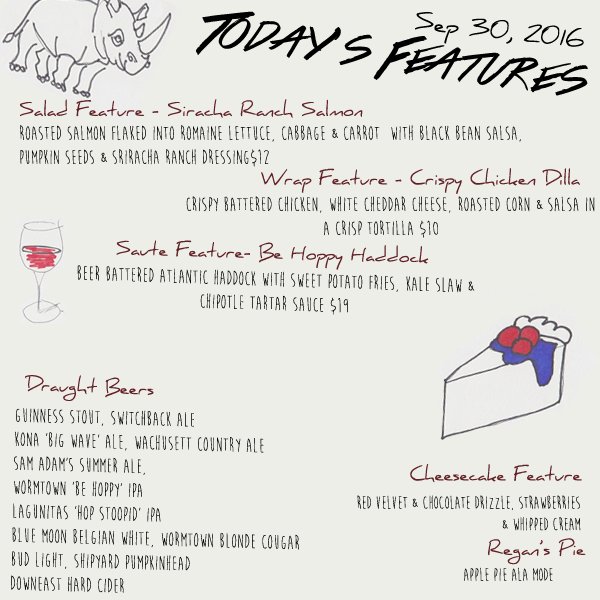 Sep 30, 2016
Today's Features
Salad Feature - Siracha Ranch Salmon
Roasted Salmon flaked into Romaine Lettuce, Cabbage & Carrot with Black Bean Salsa,
Pumpkin Seeds & Sriracha Ranch Dressing$12
Wrap Feature - Crispy Chicken Dilla
Crispy Battered Chicken, White Cheddar Cheese, Roasted Corn & Salsa in
a Crisp Tortilla $10
Saute Feature- Be Hoppy Haddock
Beer Battered Atlantic Haddock with Sweet Potato Fries, Kale Slaw &
Chipotle Tartar Sauce $19
Draught Beers
Guinness Stout, Switchback Ale
Kona 'Big Wave' Ale, Wachusett Country Ale
Sam Adam's Summer Ale,
Wormtown 'Be Hoppy' IPA
Lagunitas 'Hop Stoopid' IPA
Blue Moon Belgian White, Wormtown Blonde Cougar
Bud Light, Shipyard Pumpkinhead
Downeast Hard Cider
Cheesecake Feature
Red Velvet & Chocolate Drizzle, Strawberries
& Whipped Cream
Regan's Pie
Apple Pie Ala Mode